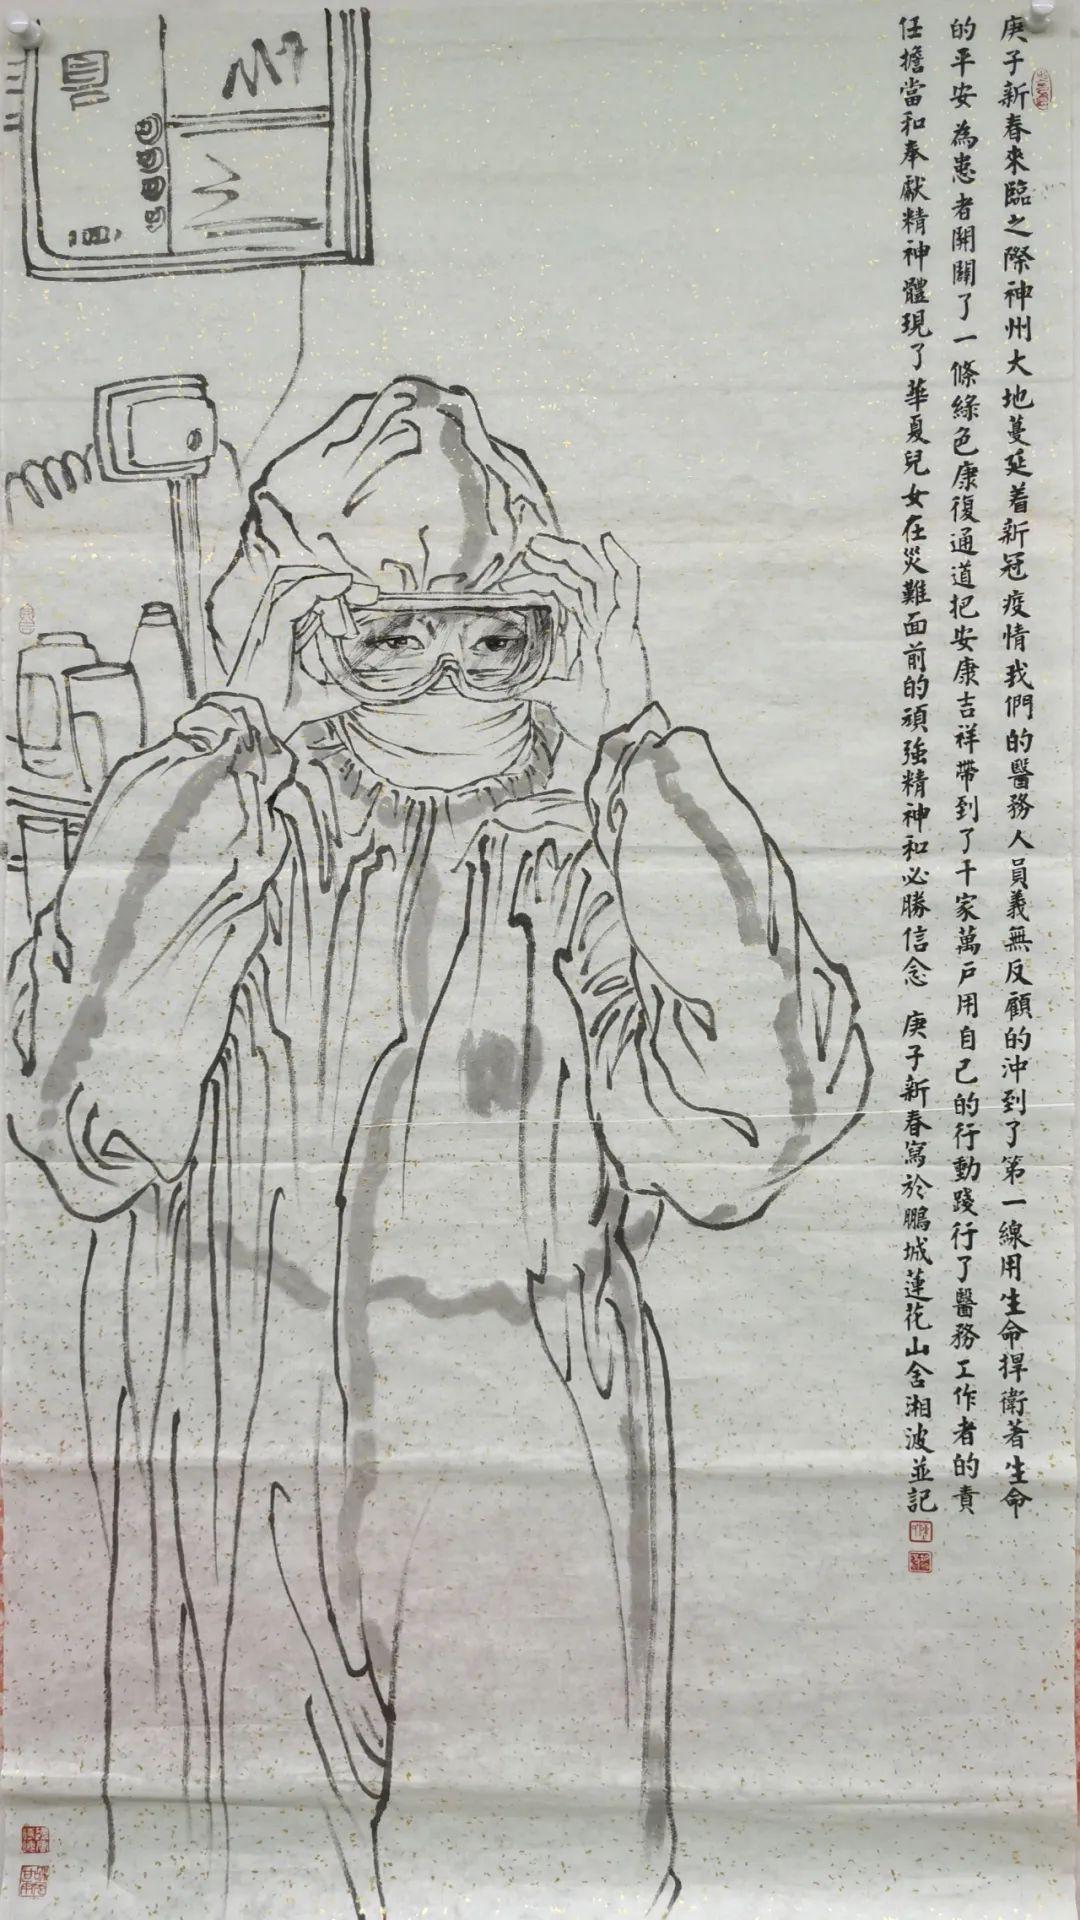 庚子新春來臨之際神州大地蔓延着新冠疫情我們的醫務人員義無反顧的沖到了第一線用生命捍衛著生命
的平安為患者開闢了一條綠色康復通道把安康吉祥帶到了千家萬戶用自己的行動踐行了醫務工作者的責
任擔當和奉獻精神體現了華夏兒女在災難面前的頑強精神和必勝信念 庚子新春寫於鵬城蓮花山舍湘波並記